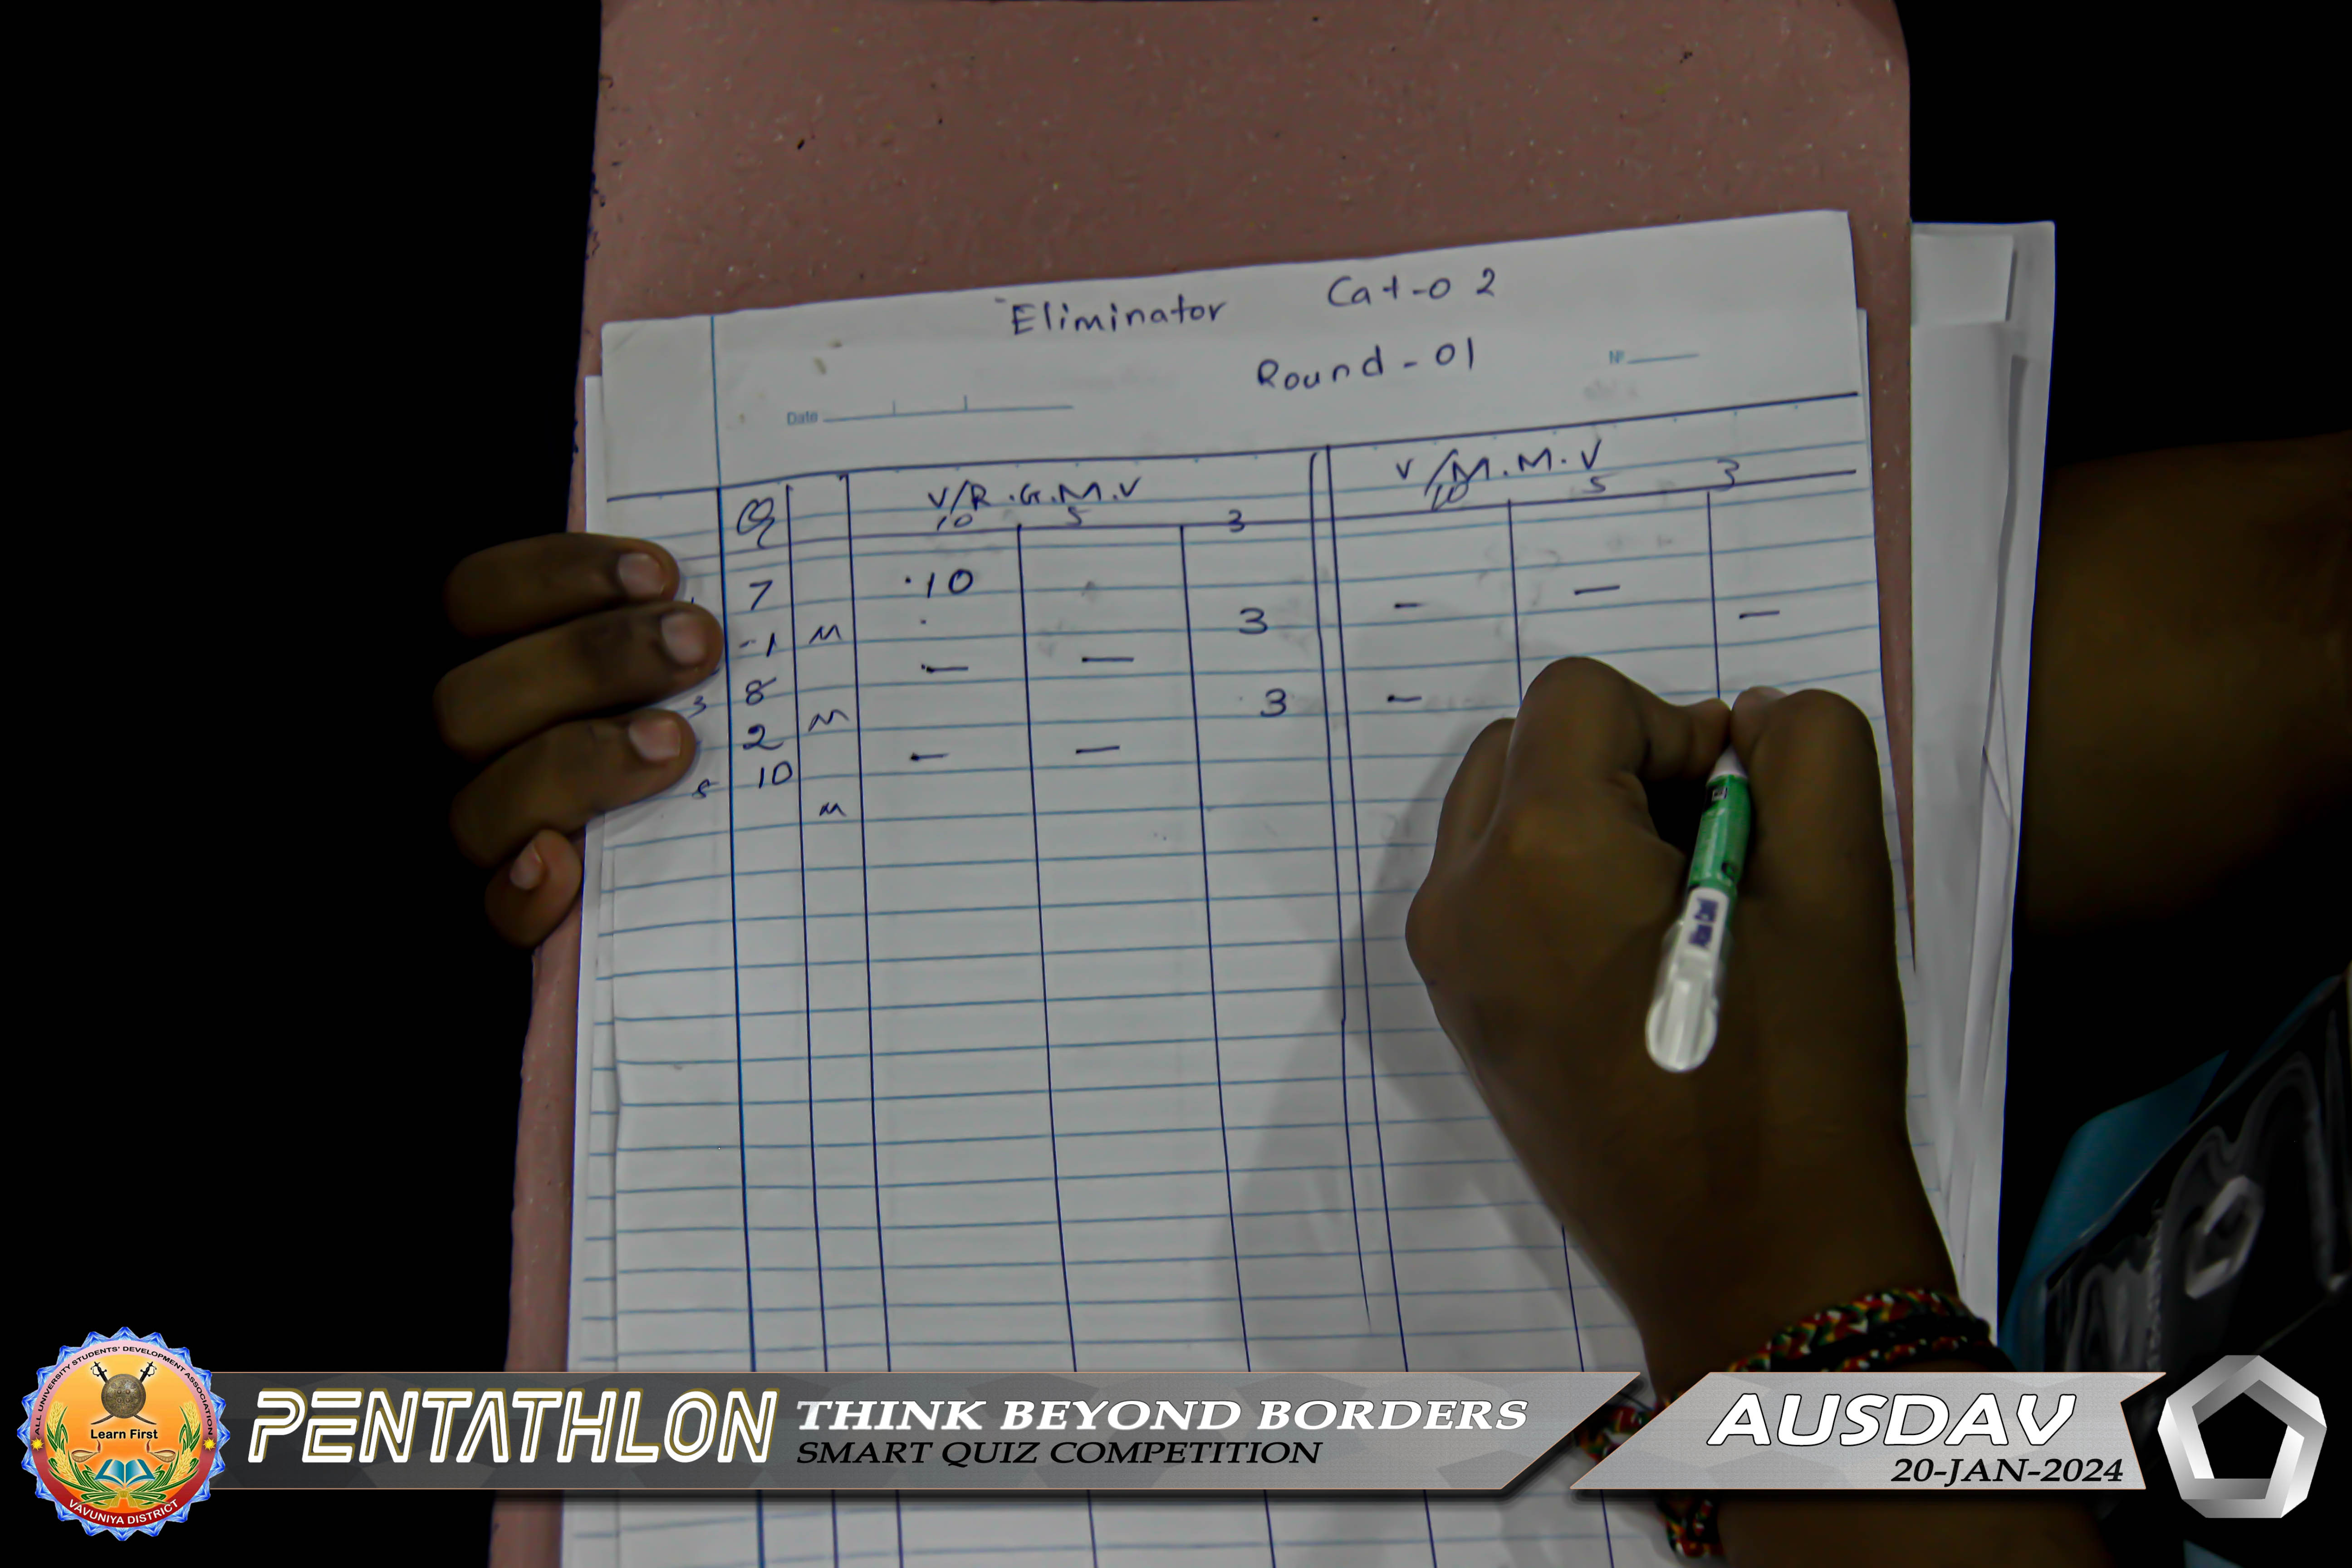 Eliminator Cat-02
Round-01
Nº
Date
Q V/R.G.M.V V/M.M.V
10 5 3 10 5 3
7 .10
-1 M 3 - - -
3 8 - -
2 M 3 -
5 10 - -
M
ALL UNIVERSITY STUDENTS' DEVELOPMENT ASSOCIATION
Learn First
VAVUNIYA DISTRICT
PENTATHLON THINK BEYOND BORDERS
SMART QUIZ COMPETITION
AUSDAV
20-JAN-2024